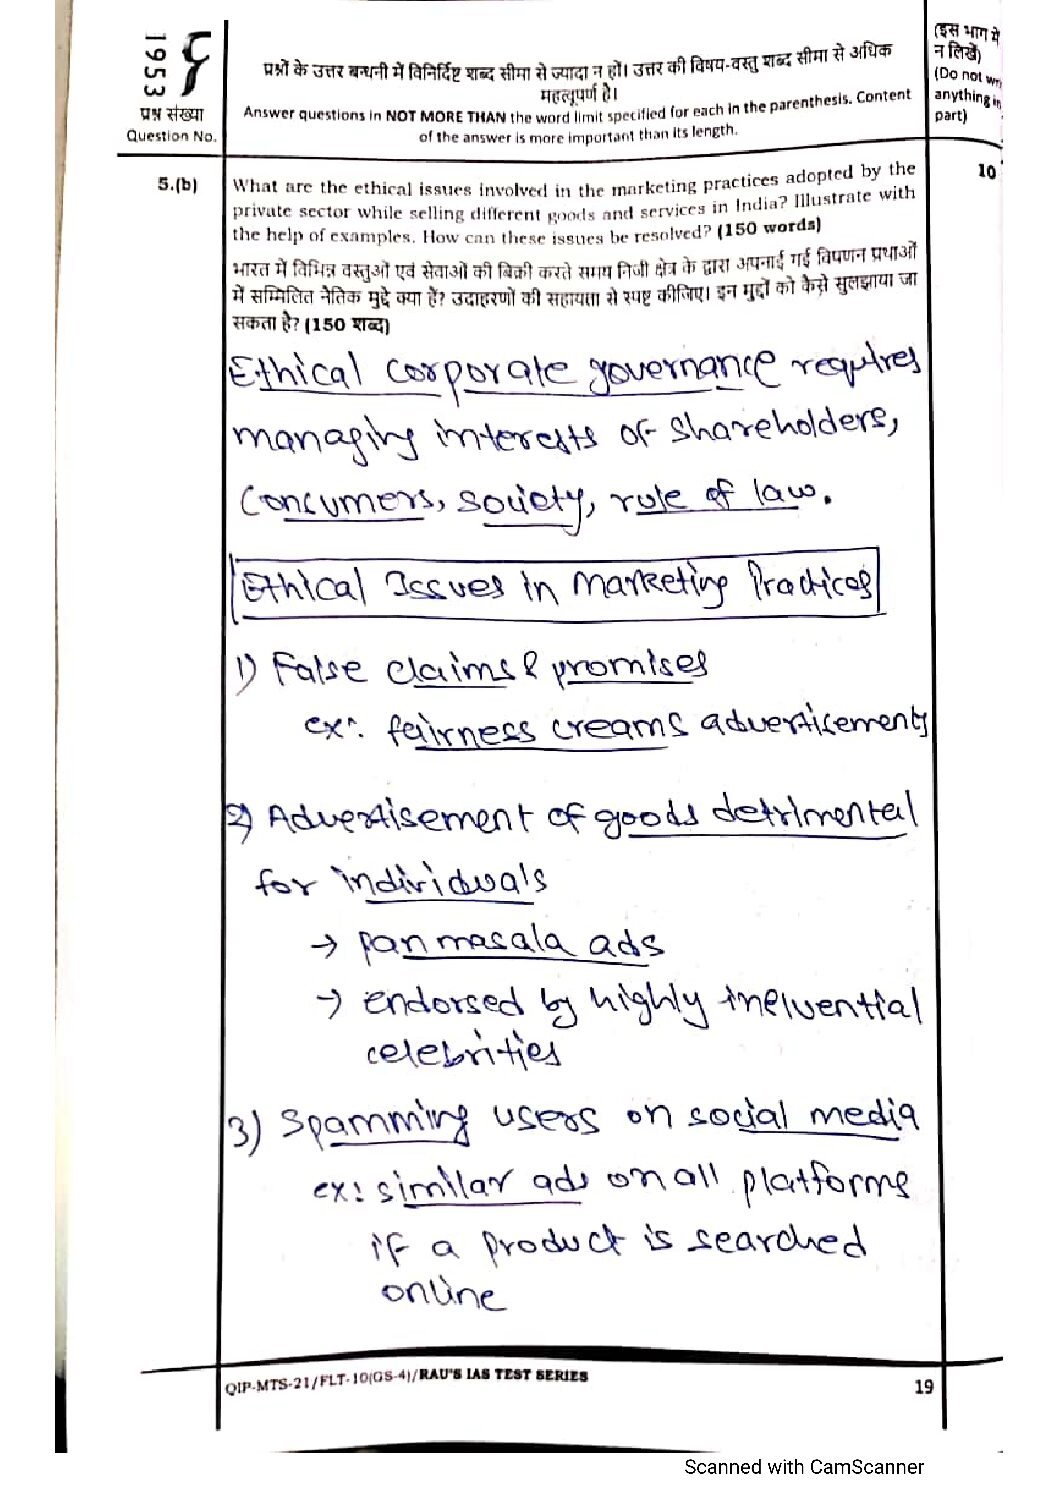 1953
प्रश्न संख्या
Question No.
प्रश्नों के उत्तर बन्धनी में विनिर्दिष्ट शब्द सीमा से ज्यादा न हों। उत्तर की विषय-वस्तु शब्द सीमा से अधिक
महत्वपूर्ण है।
Answer questions in NOT MORE THAN the word limit specified for each in the parenthesis. Content
of the answer is more important than its length.
(इस भाग में
न लिखें)
(Do not wri
anything in
part)
5.(b)
What are the ethical issues involved in the marketing practices adopted by the
private sector while selling different goods and services in India? Illustrate with
the help of examples. How can these issues be resolved? (150 words)
10
भारत में विभिन्न वस्तुओं एवं सेवाओं की बिक्री करते समय निजी क्षेत्र के द्वारा अपनाई गई विपणन प्रथाओं
में सम्मिलित नैतिक मुद्दे क्या हैं? उदाहरणों की सहायता से स्पष्ट कीजिए। इन मुद्दों को कैसे सुलझाया जा
सकता है? (150 शब्द)
Ethical corporate governance requires
managing interests of shareholders,
Consumers, society, rule of law.
Ethical Issues in Marketing Practices
1) False claims & promises
ex: fairness creams advertisements
2) Advertisement of goods detrimental
for individuals
→ pan masala ads
→ endorsed by highly ineluential
celebrities
3) Spamming users on social media
ex: similar ads on all platforms
if a product is searched
online
QIP-MTS-21/FLT-10(GS-4)/RAU'S IAS TEST SERIES
19
Scanned with CamScanner